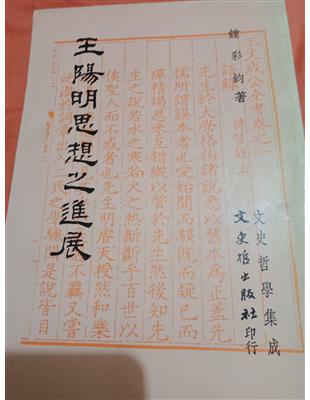 鍾彩鈞著
王陽明思想之進展
文史哲學集成
文史哲出版社印行
王文成公全書卷之一
語錄一 傳習錄上
先生於大學格物諸說悉以舊本為正蓋先
儒所謂誤本者也愛始聞而駭既而疑已而
殫精竭思參互錯縱以質於先生然後知先
生之說若水之寒若火之熱斷斷乎百世以
俟聖人而不惑者也先生明睿天授然和樂
不羈又嘗
二氏之學驟聞是說皆目